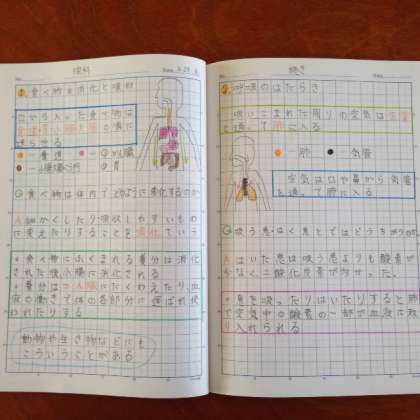 理科
食べ物の消化と吸収
口から入った食べ物は
食道
に送られる
食道
胃
食べ物は体内でどのように変化するのか
A 細かくしたり吸収しやすいもの
に変えたりすることを消化という
食べ物にふくまれる養分は消化
された後小腸に
養分は
の働きで体の各部分に運ばれ使
われたりする
動物や生き物などにも
こういうことがある
続き
呼吸のはたらき
吸いこまれた周りの空気は
通って肺に入る
肺
気管
空気は口や鼻から気管
を通って肺に入る
Q 吸う息はく息とではどうちがうのか
はいた息は吸う息よりも酸素が
少なく二酸化炭素が
息を吸ったりはいたりすると肺
で空気中の酸素の一部が血液に取
り入れられる